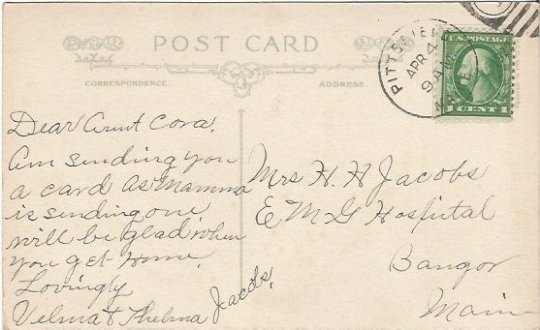 POST CARD
CORRESPONDENCE
ADDRESS.
PITTSFIELD
APR 4
9 AM
U.S. POSTAGE
1 CENT 1
Dear Aunt Cora.
Am sending you
a card as Mamma
is sending one
will be glad when
you get home.
Lovingly
Velma & Thelma Jacobs.
Mrs H. H Jacobs
E M G Hospital
Bangor
Main